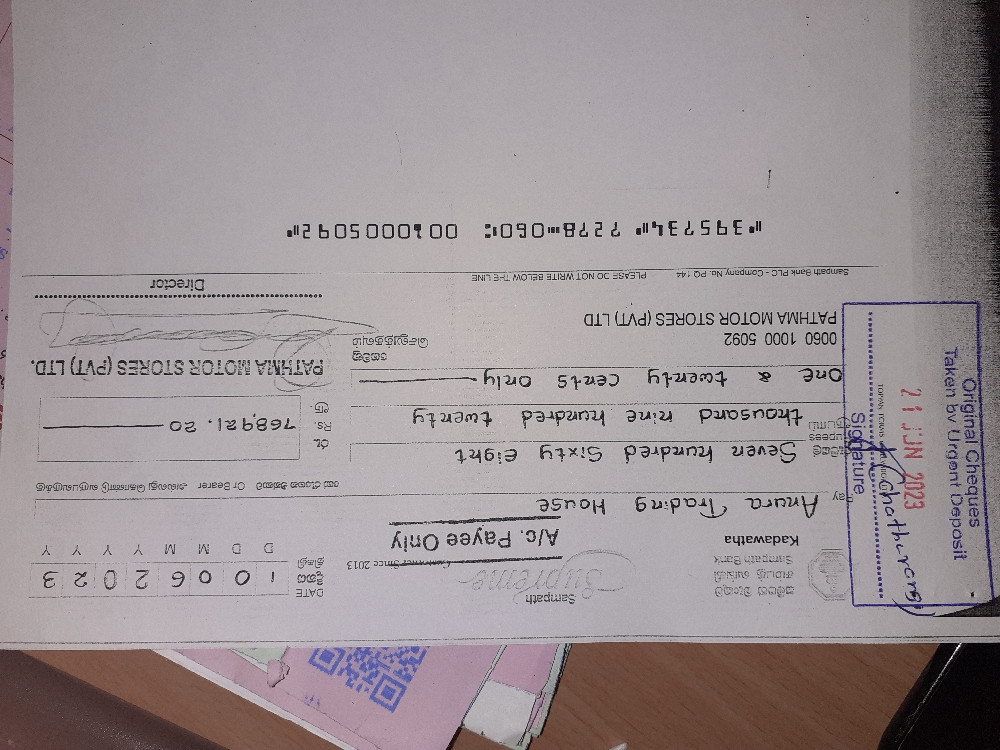 Sampath
Supreme
Customer Since 2013
සම්පත් බැංකුව
சம்பத் வங்கி
Sampath Bank
Kadawatha
A/c. Payee Only
DATE
දිනය
திகதி
1 0 0 6 2 0 2 3
D D M M Y Y Y Y
Pay Anura Trading House
Or Bearer
Rupees
Seven hundred Sixty eight
thousand nine hundred twenty
one & twenty cents only
රු.
Rs.
ரூ.
768,921.20
0060 1000 5092
PATHMA MOTOR STORES (PVT) LTD
PATHMA MOTOR STORES (PVT) LTD.
Director
Sampath Bank PLC - Company No. PQ 144
PLEASE DO NOT WRITE BELOW THE LINE
⑈395734⑈ 7278⑉060⑆ 0010005092⑈
Original Cheques
Taken by Urgent Deposit
21 JUN 2023
Signature